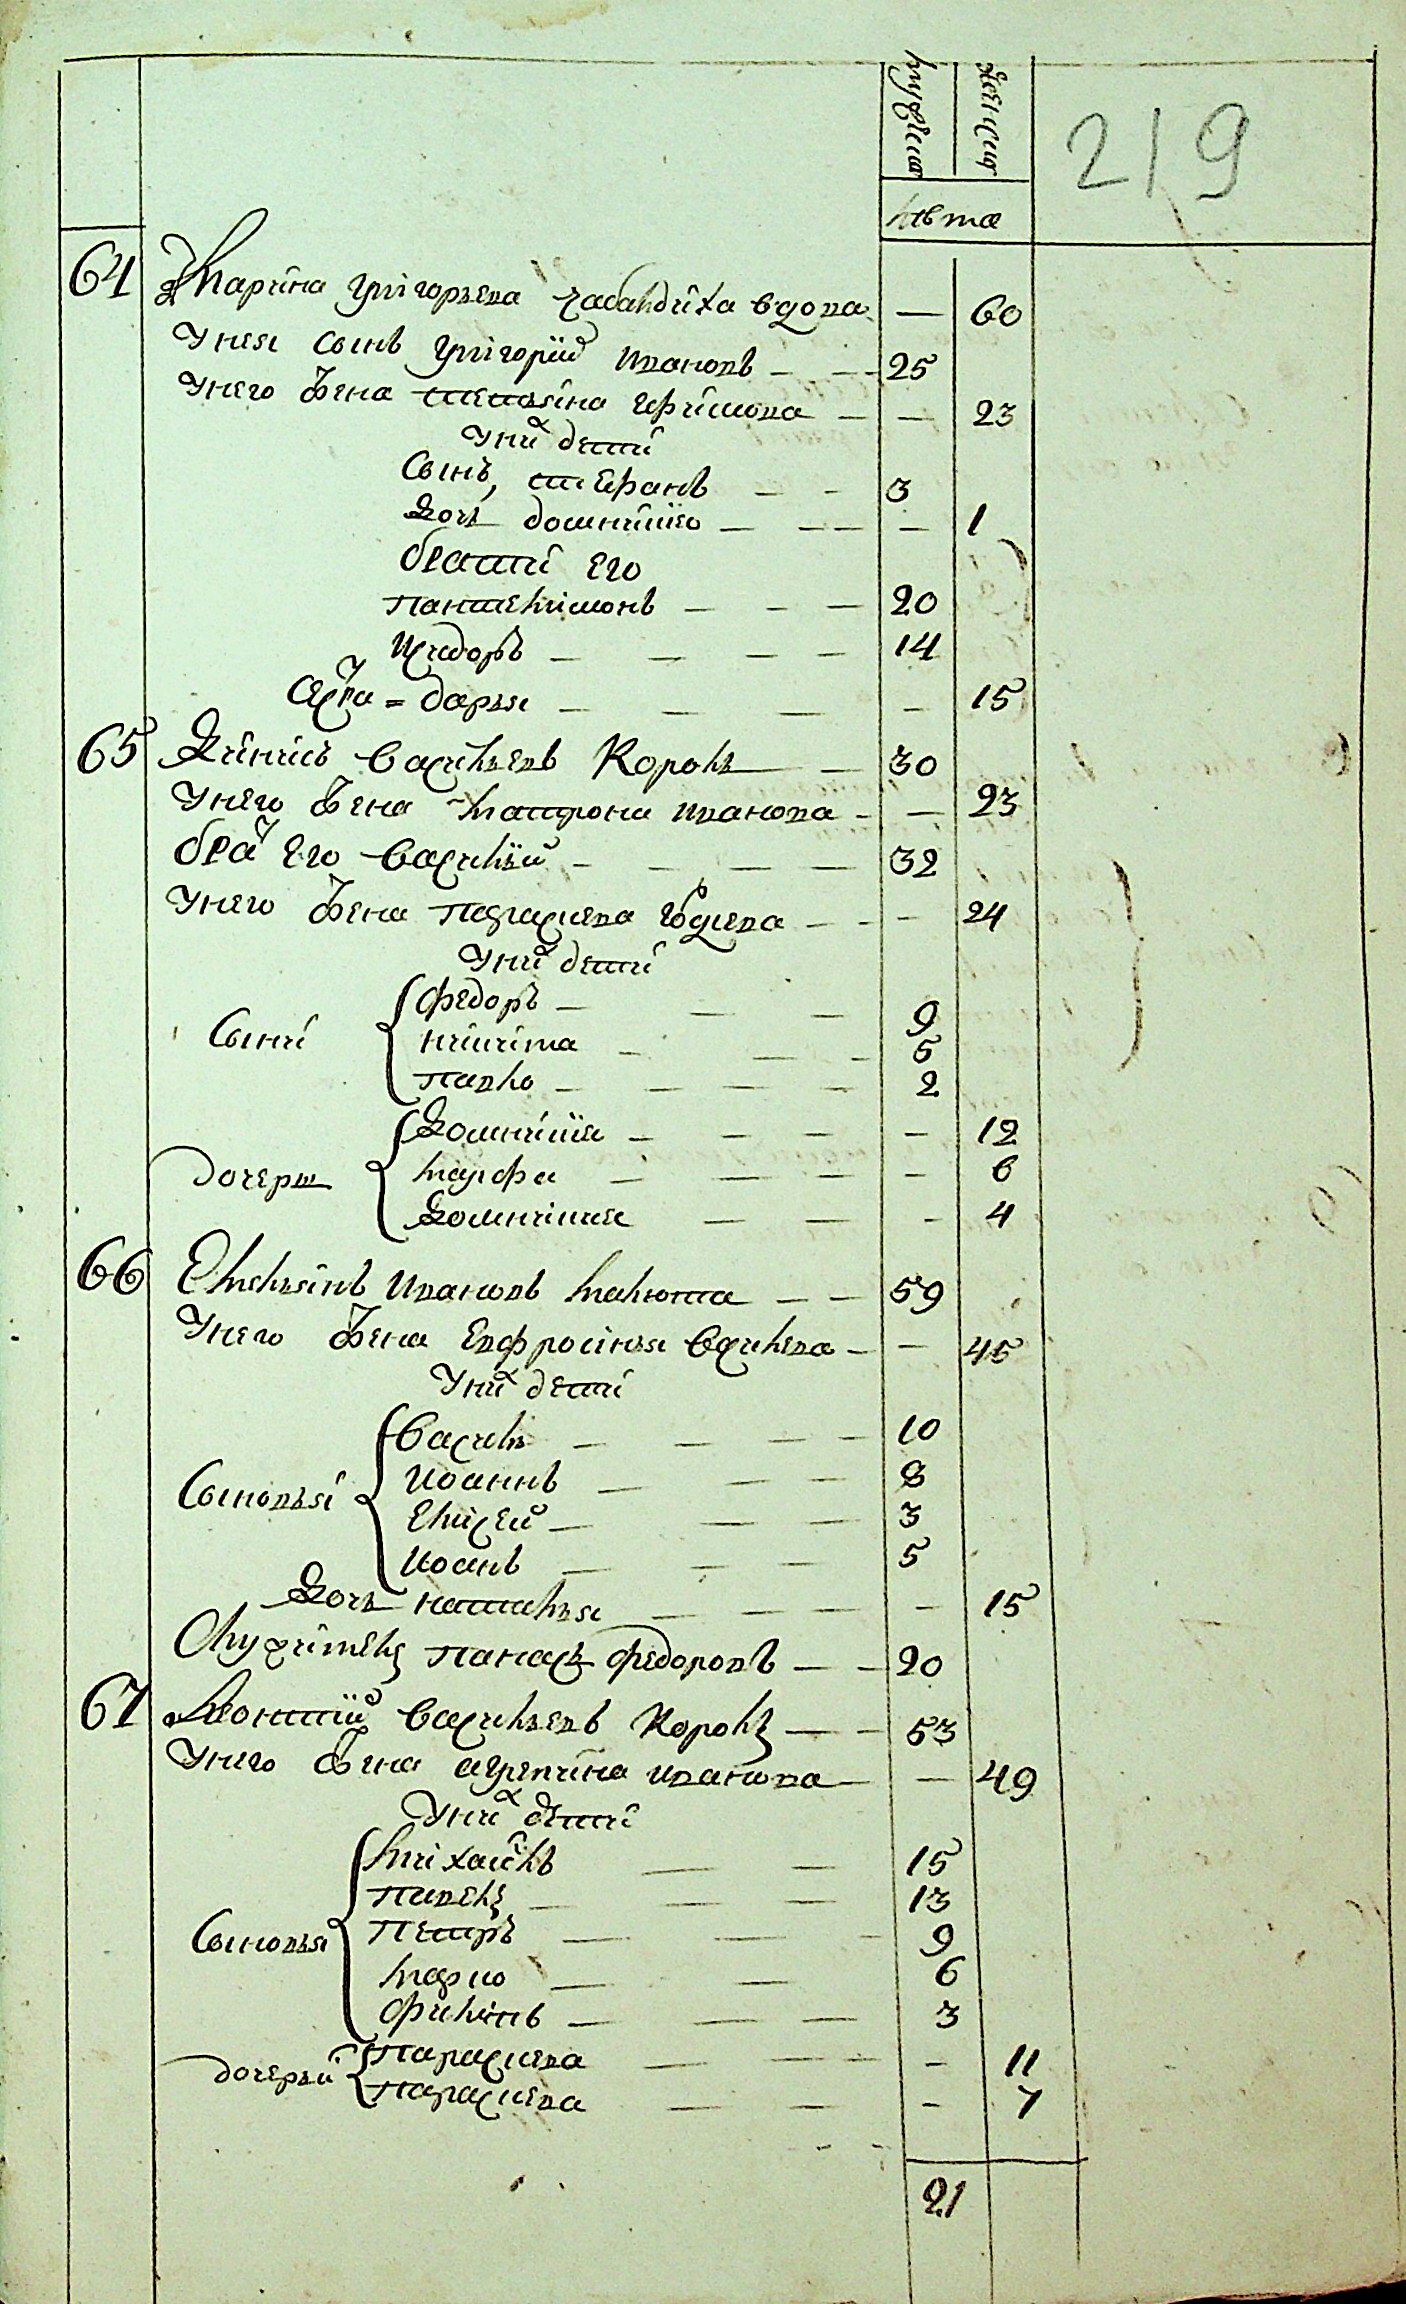 мужеска
женска
219
лѣта
64 Марина Григорьева Чабандиха вдова — 60
У нея сынъ Григорій Ивановъ — 25
У него жена Татьяна Ефимова — 23
У них дети
Сынъ, Стефанъ — 3
Дочь Домникїя — 1
Брати его
Пантелимонъ — 20
Исидоръ — 14
Сестра = Дарья — 15
65 Данило Васильевъ Король — 30
У него жена Матрона Иванова — 23
Брат его Василій — 32
У него жена Параскева — 24
У них дети
Сыни
Федоръ — 9
Никита — 5
Павло — 2
Дочери
Домникїя — 12
Марфа — 6
Домникия — 4
66 Иванов — 59
У него жена Евфросинья Василева — 45
У них дети
Сыновья
Василь — 10
Иоаннъ — 8
Елисей — 3
Иоанъ — 5
Дочь Наталья — 15
Служитель Панасъ Федоровъ — 20
67 Леонтій Васильевъ Король — 53
У него жена Агрепина Иванова — 49
У них дети
Сыновья
Михаилъ — 15
Павелъ — 13
Петръ — 9
Марко — 6
Филипъ — 3
Дочерьи
Параскева — 11
Параскева — 7
21